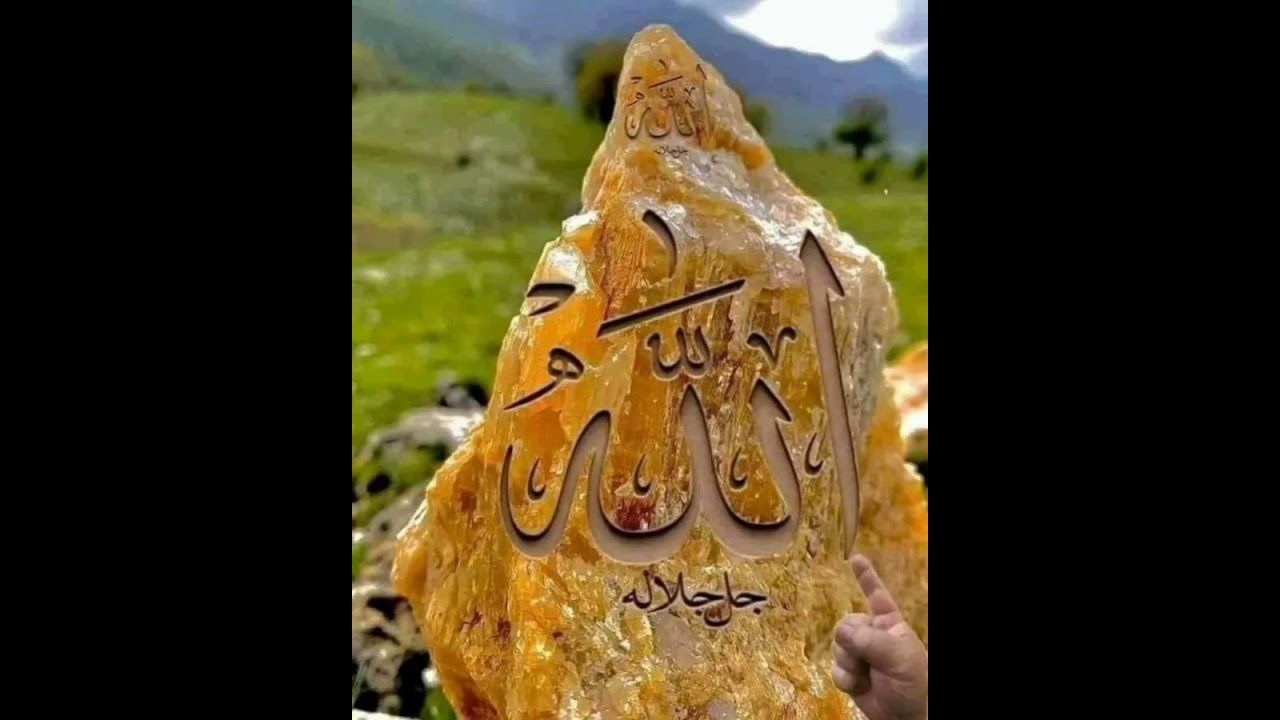 اللهُ
جل جلاله
اللهُ
جل جلاله